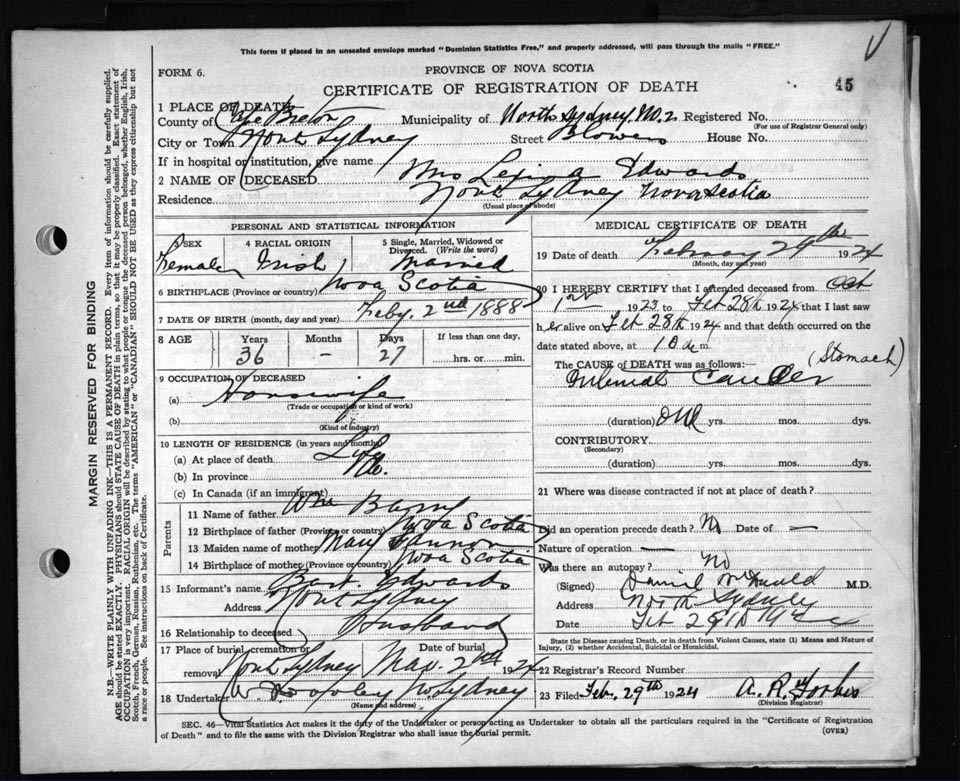 This form if placed in an unsealed envelope marked "Dominion Statistics Free," and properly addressed, will pass through the mails "FREE."
FORM 6.
PROVINCE OF NOVA SCOTIA
CERTIFICATE OF REGISTRATION OF DEATH
45
1 PLACE OF DEATH
County of Cape Breton Municipality of North Sydney No. 2 Registered No.
(For use of Registrar General only)
City or Town North Sydney Street Blowers House No.
If in hospital or institution, give name
2 NAME OF DECEASED Mrs Edwards
Residence North Sydney Nova Scotia
(Usual place of abode)
PERSONAL AND STATISTICAL INFORMATION
3 SEX 4 RACIAL ORIGIN 5 Single, Married, Widowed or Divorced (Write the word)
Female Irish Married
6 BIRTHPLACE (Province or country) Nova Scotia
7 DATE OF BIRTH (month, day and year) Feby. 2nd 1888
8 AGE Years Months Days If less than one day,
36 - 27 hrs. or min.
9 OCCUPATION OF DECEASED
(a) Housewife
(Trade or occupation or kind of work)
(b)
(Kind of industry)
10 LENGTH OF RESIDENCE (in years and months)
(a) At place of death Life
(b) In province Do.
(c) In Canada (if an immigrant)
Parents
11 Name of father Wm Barry
12 Birthplace of father (Province or country) Nova Scotia
13 Maiden name of mother Mary
14 Birthplace of mother (Province or country) Nova Scotia
15 Informant's name Bart. Edwards
Address North Sydney
16 Relationship to deceased Husband
17 Place of burial, cremation or removal Date of burial
North Sydney Mar. 2nd 1924
18 Undertaker N Sydney
(Name and address)
MEDICAL CERTIFICATE OF DEATH
19 Date of death February 29th 1924
(Month, day and year)
20 I HEREBY CERTIFY that I attended deceased from Oct
1st 1923 to Feb 28th 1924 that I last saw
her alive on Feb 28th 1924 and that death occurred on the
date stated above, at 10 a m.
The CAUSE of DEATH was as follows:— (Stomach)
Cancer
(duration) One yrs. mos. dys.
CONTRIBUTORY
(Secondary)
(duration) yrs. mos. dys.
21 Where was disease contracted if not at place of death?
Did an operation precede death? No Date of —
Nature of operation —
Was there an autopsy? No
(Signed) Daniel McDonald M.D.
Address North Sydney
Date Feb 29th 1924
State the Disease causing Death, or in death from Violent Causes, state (1) Means and Nature of Injury, (2) whether Accidental, Suicidal or Homicidal.
22 Registrar's Record Number
23 Filed Feb. 29th 1924 A. R. Forbes
(Division Registrar)
SEC. 46—Vital Statistics Act makes it the duty of the Undertaker or person acting as Undertaker to obtain all the particulars required in the "Certificate of Registration
of Death" and to file the same with the Division Registrar who shall issue the burial permit.
(OVER)
MARGIN RESERVED FOR BINDING
N.B—WRITE PLAINLY WITH UNFADING INK—THIS IS A PERMANENT RECORD. Every item of information should be carefully supplied.
AGE should be stated EXACTLY. PHYSICIANS should STATE CAUSE OF DEATH in plain terms, so that it may be properly classified. Exact statement of
OCCUPATION is very important. RACIAL ORIGIN will be described by stating to what people or tongue the deceased person belonged, whether English, Irish,
Scotch, French, German, Russian, Ruthenian, etc. The terms "AMERICAN" or "CANADIAN" SHOULD NOT BE USED as they express citizenship but not
a race or people. See instructions on back of Certificate.